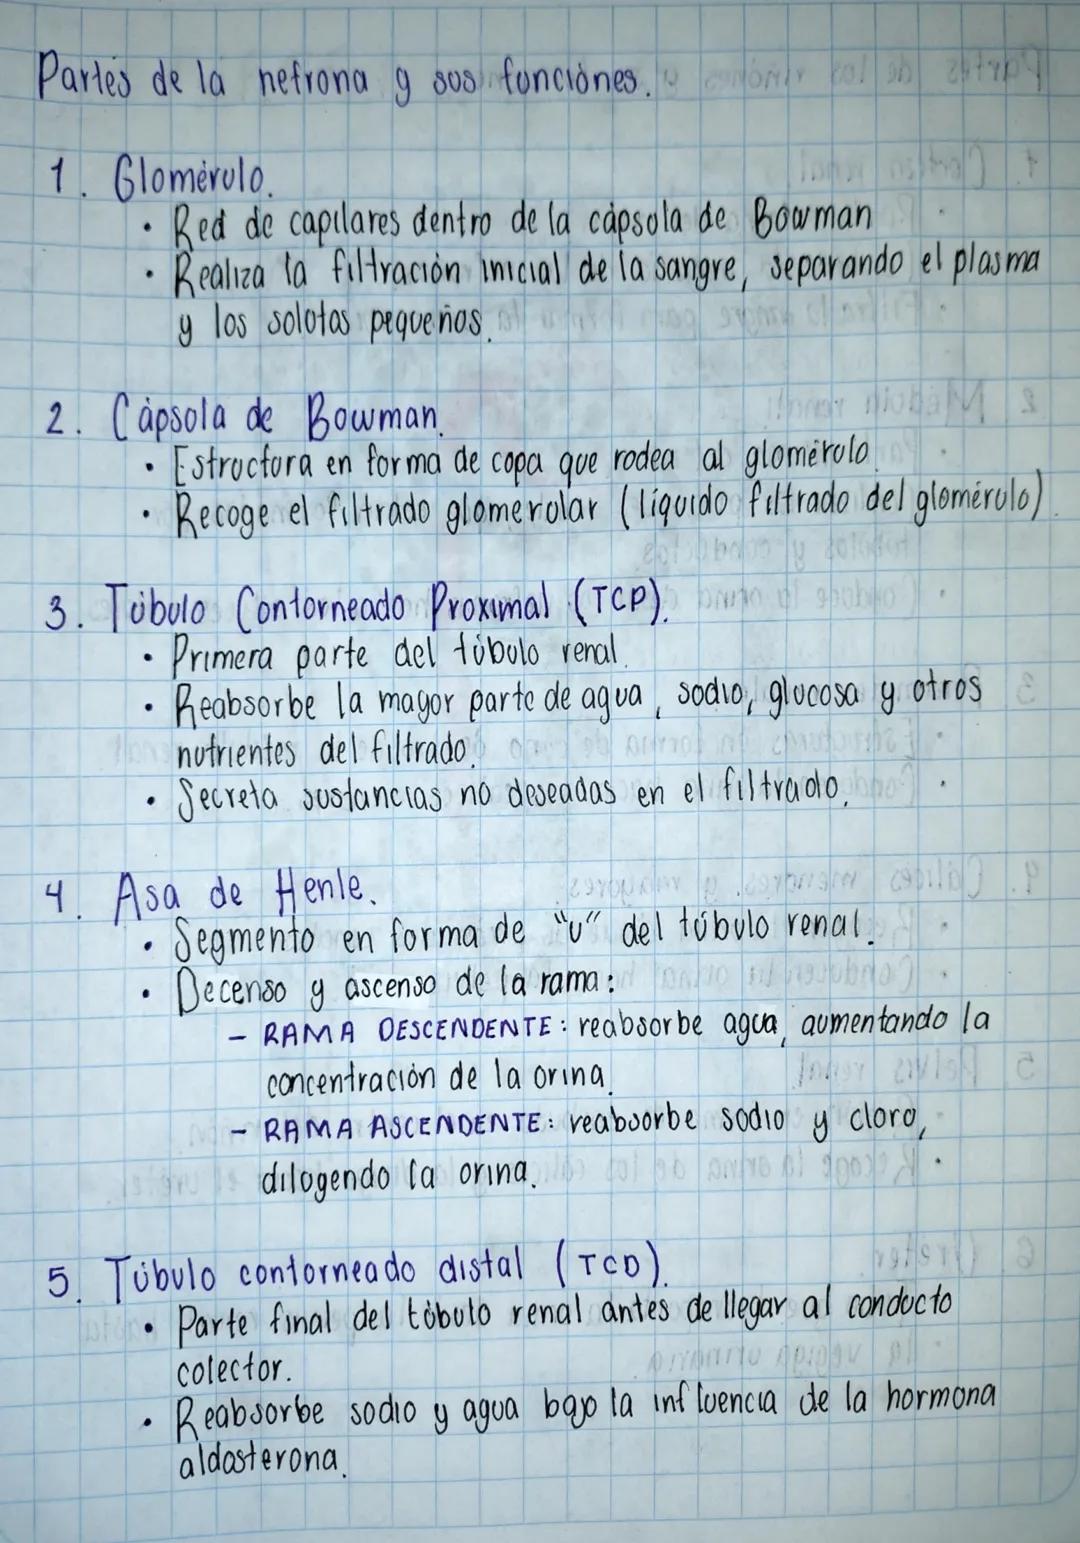 Partes de la nefrona y sus funciónes.
1. Glomérulo.
• Red de capilares dentro de la cápsula de Bowman
• Realiza la filtración inicial de la sangre, separando el plasma
y los solutos pequeños.
2. Cápsula de Bowman.
• Estructura en forma de copa que rodea al glomérulo.
• Recoge el filtrado glomerular (líquido filtrado del glomérulo).
3. Túbulo Contorneado Proximal (TCP).
• Primera parte del túbulo renal.
• Reabsorbe la mayor parte de agua, sodio, glucosa y otros
nutrientes del filtrado.
• Secreta sustancias no deseadas en el filtrado.
4. Asa de Henle.
• Segmento en forma de "U" del túbulo renal.
• Decenso y ascenso de la rama:
- RAMA DESCENDENTE: reabsorbe agua, aumentando la
concentración de la orina.
- RAMA ASCENDENTE: reabsorbe sodio y cloro,
diluyendo la orina.
5. Túbulo contorneado distal (TCD).
• Parte final del túbulo renal antes de llegar al conducto
colector.
• Reabsorbe sodio y agua bajo la influencia de la hormona
aldosterona.